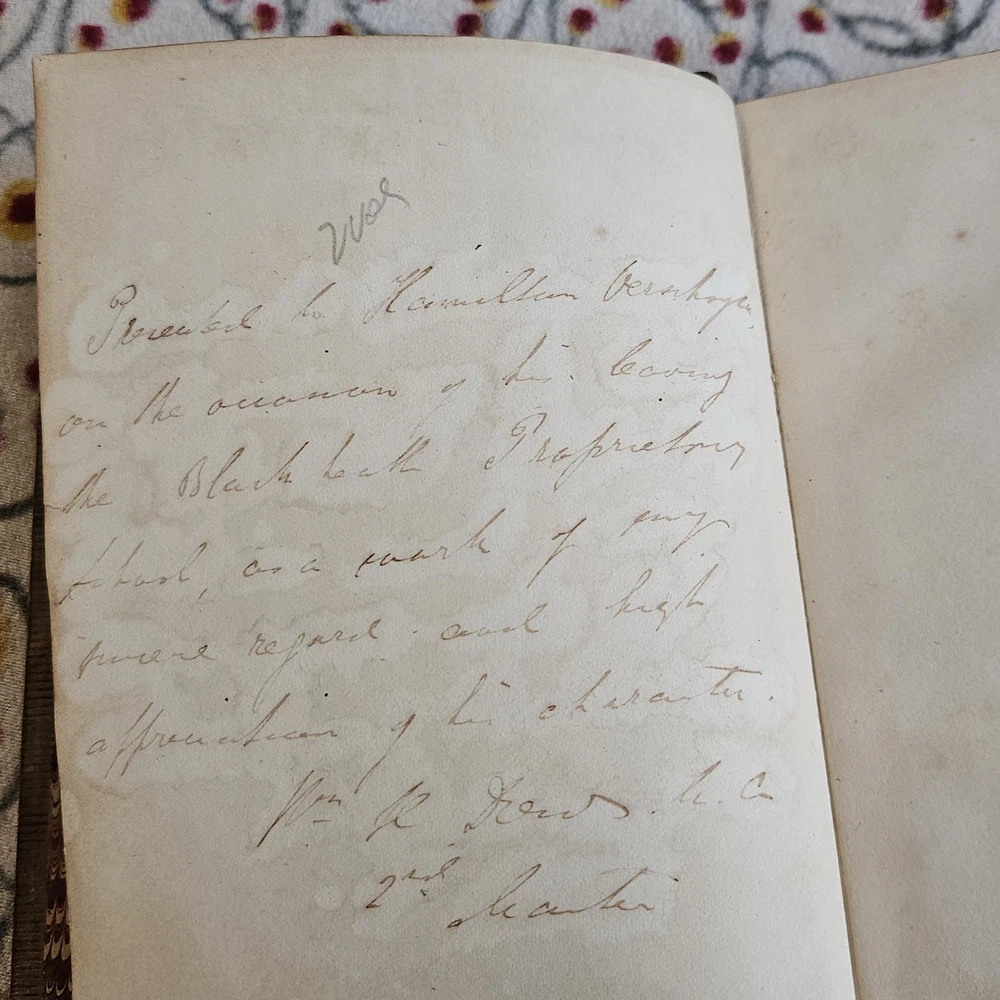 Presented to Hamilton Verschoyle
on the occasion of his leaving
the Blackheath Proprietary
School, as a mark of my
sincere regard and high
appreciation of his character.
Wm
2nd Master